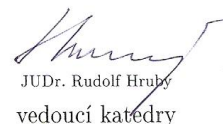 JUDr. Rudolf Hrubý
vedoucí katedry